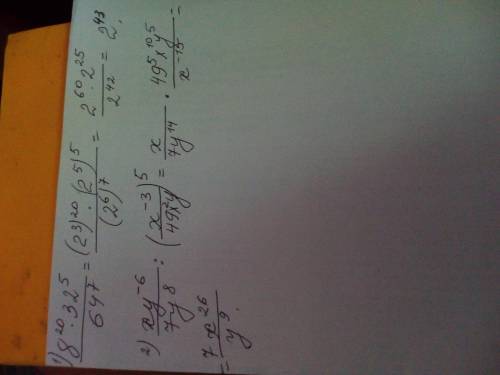 1) 8²⁰·32⁵/64⁷ = (2³)²⁰·(2⁵)⁵/(2⁶)⁷ = 2⁶⁰·2²⁵/2⁴² = 2⁴³.
2) xy⁻⁶/7y⁸ : (x⁻³/49x²y)⁵ = x/7y¹⁴ · 49⁵x¹⁰y⁵/x⁻¹⁵ =
= 7x²⁶/y⁹.